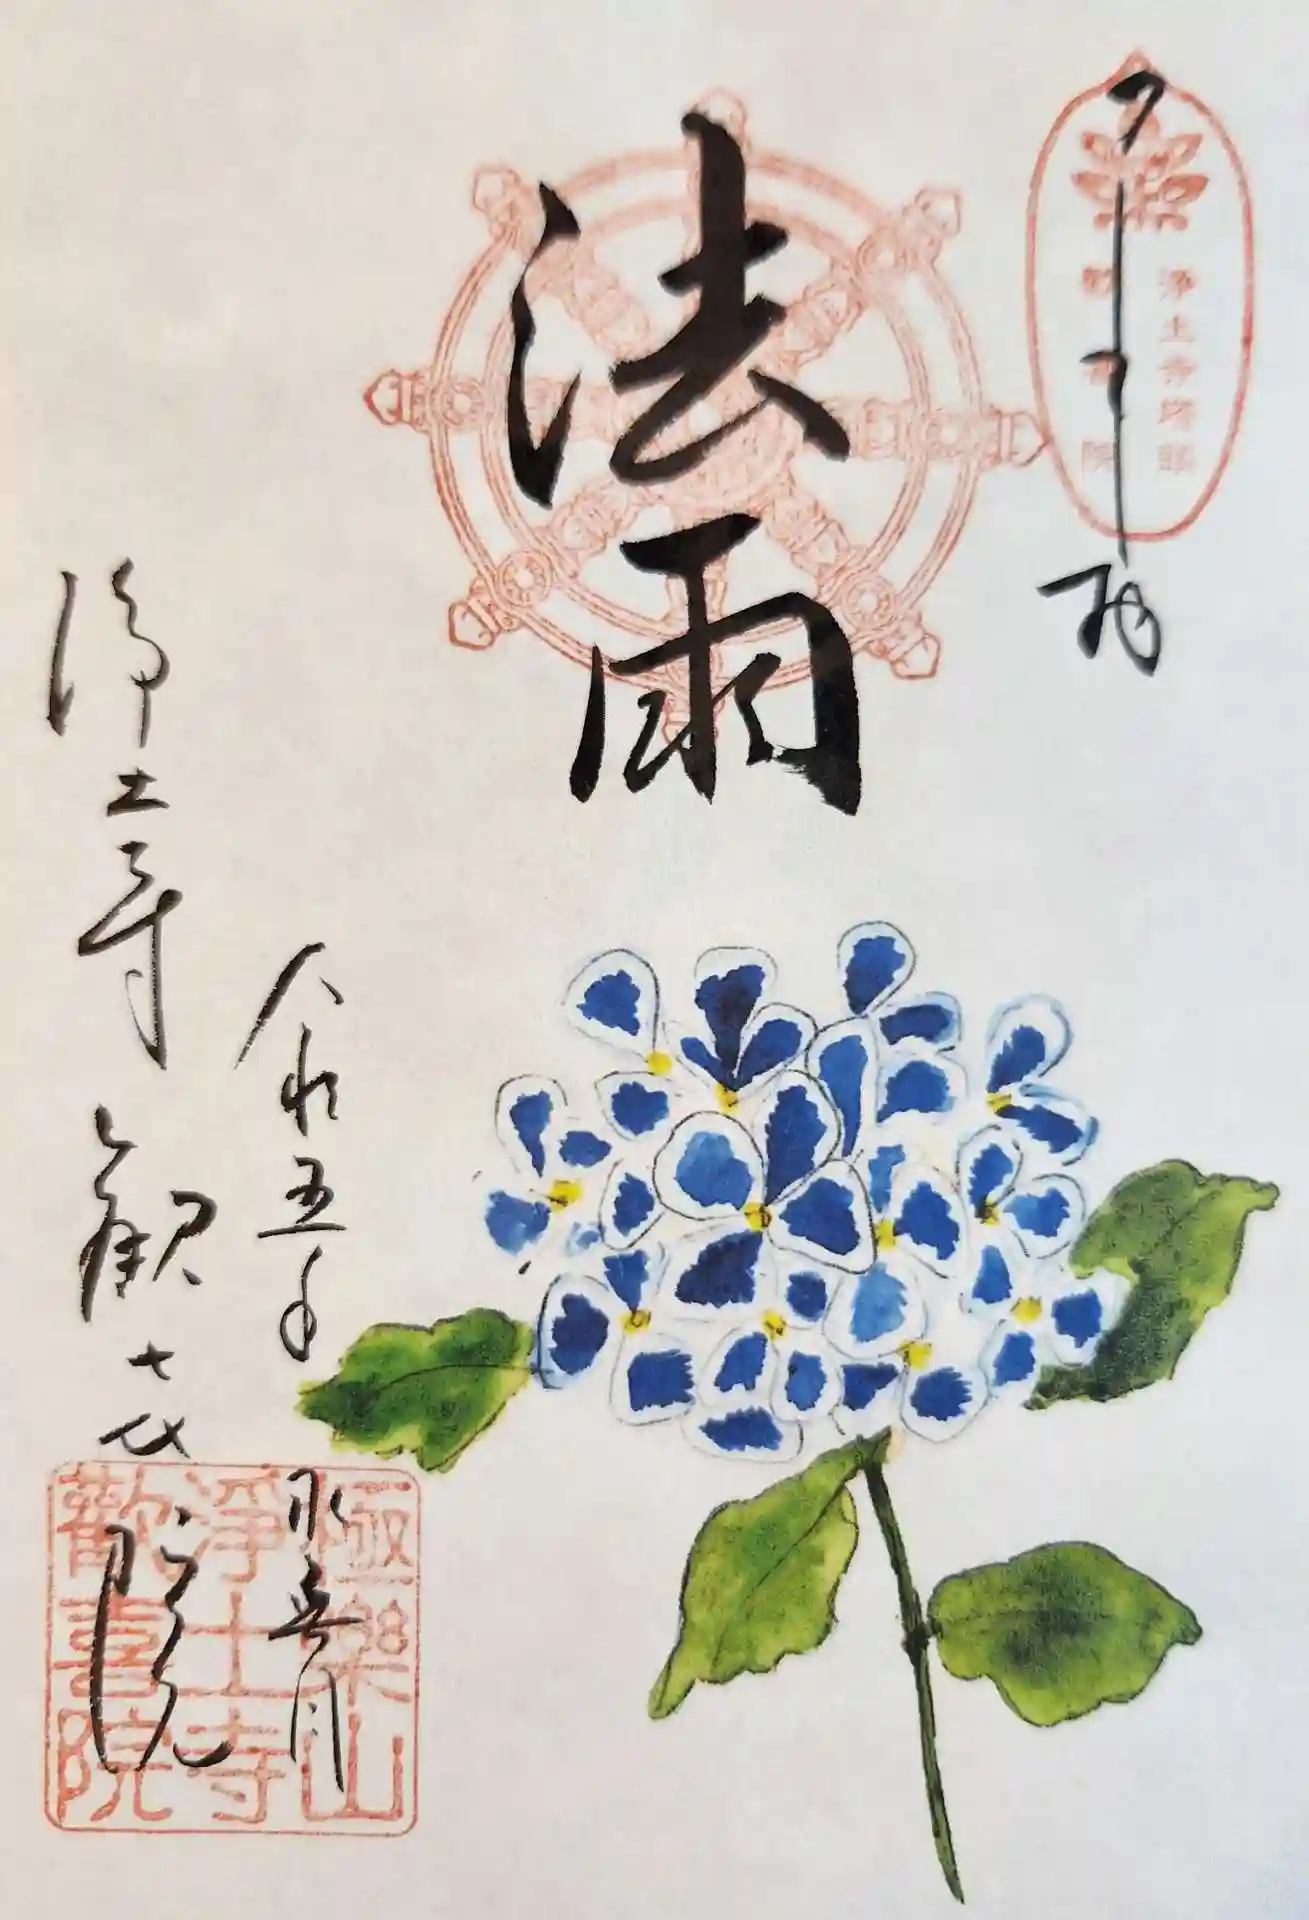 浄土寺塔頭
歓喜院
法雨
令和五年
水無月
浄土寺
歓喜院
極樂山
淨土寺
歡喜院